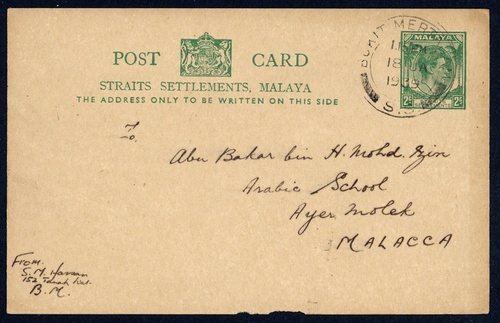 POST CARD
STRAITS SETTLEMENTS, MALAYA
THE ADDRESS ONLY TO BE WRITTEN ON THIS SIDE
BUKIT MERT
18
1939
S.
MALAYA
2c 2c
To,
Abu Bakar bin H. Mohd. Zin
Arabic School
Ayer Molek
MALACCA
From.
S. M. Hassan
152
B. M.